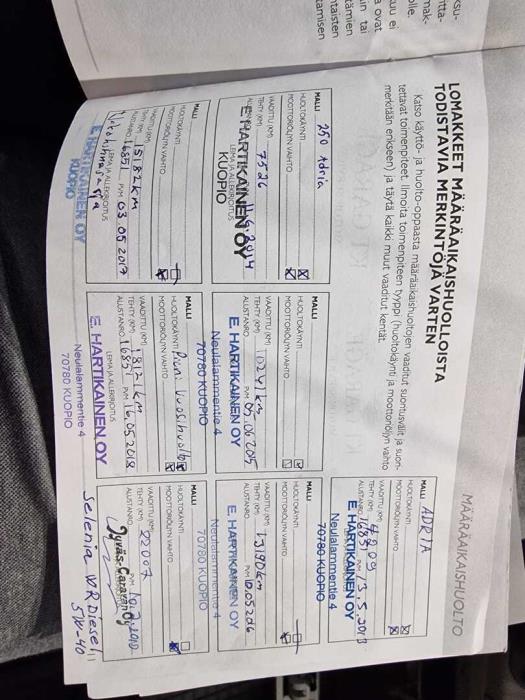 MÄÄRÄAIKAISHUOLTO
LOMAKKEET MÄÄRÄAIKAISHUOLLOISTA
TODISTAVIA MERKINTÖJÄ VARTEN
Katso käyttö- ja huolto-oppaasta määräaikaishuoltojen vaaditut suoritusvälit ja suori-
tettavat toimenpiteet. Ilmoita toimenpiteen tyyppi (huoltokäynti ja moottoriöljyn vaihto
merkitään erikseen) ja täytä kaikki muut vaaditut kentät.
MALLI ADRIA
HUOLTOKÄYNTI
MOOTTORIÖLJYN VAIHTO
VAADITTU (KM)
TEHTY (KM) 4109
ALUSTANRO. PVM 13.5.2013
E. HARTIKAINEN OY
Neulalammentie 4
70780 KUOPIO
MALLI 250 Adria
HUOLTOKÄYNTI
MOOTTORIÖLJYN VAIHTO
VAADITTU (KM)
TEHTY (KM) 7526
LEIMA JA ALLEKIRJOITUS
E. HARTIKAINEN OY
KUOPIO
MALLI
HUOLTOKÄYNTI
MOOTTORIÖLJYN VAIHTO
VAADITTU (KM)
TEHTY (KM) 10241 km
ALUSTANRO. PVM 05.06.2015
E. HARTIKAINEN OY
Neulalammentie 4
70780 KUOPIO
MALLI
HUOLTOKÄYNTI
MOOTTORIÖLJYN VAIHTO
VAADITTU (KM)
TEHTY (KM) 13190 km
ALUSTANRO. PVM
E. HARTIKAINEN OY
Neulalammentie 4
70780 KUOPIO
MALLI
HUOLTOKÄYNTI
MOOTTORIÖLJYN VAIHTO
VAADITTU (KM)
TEHTY (KM) 15182 km
ALUSTANRO. 16851 PVM 03.05.2017
LEIMA JA ALLEKIRJOITUS
E. HARTIKAINEN OY
KUOPIO
MALLI
HUOLTOKÄYNTI Pieni vuosihuolto
MOOTTORIÖLJYN VAIHTO
VAADITTU (KM)
TEHTY (KM) 18121 km
ALUSTANRO. 16851 PVM 16.05.2018
LEIMA JA ALLEKIRJOITUS
E. HARTIKAINEN OY
Neulalammentie 4
70780 KUOPIO
MALLI
HUOLTOKÄYNTI
MOOTTORIÖLJYN VAIHTO
VAADITTU (KM)
TEHTY (KM) 22007
ALUSTANRO. PVM
Jyväs-Caravan Oy
Selenia WR Diesel
5W-40